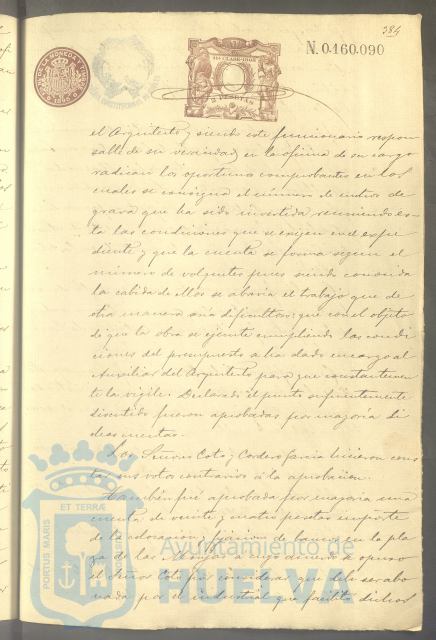 384
N. 0.160.090
11ª CLASE - 1895
2 PESETAS
el Arquitecto y siendo este funcionario respon
sable de su veracidad, en la oficina de su cargo
radican los oportunos comprobantes en los
cuales se consigna el número de metros de
grava que ha sido invertida reuniendo es-
ta las condiciones que se exijen en el espe
diente y que la cuenta se forma segun el
número de volquetes pues siendo conocida
la cabida de ellos se abrevia el trabajo que de
otra manera seria dificultoso: que con el objeto
de que la obra se ejecute cumpliendo las condi
ciones del presupuesto a ha dado encargo al
Auxiliar del Arquitecto para que constantemen
te la vigile. Declarado el punto suficientemente
discutido fueron aprobadas por mayoría di
chas cuentas.
Los Señores Coto y Cordero Garcia hicieron cons
tar sus votos contrarios á la aprobacion.
Tambien fué aprobada por mayoria una
cuenta de veinte y cuatro pesetas importe
de la colocacion y fijacion de bancos en la pla
za de las Monjas
el Señor Coto por considerar que debe ser abo
nada por el industrial que facilitó dichos
PORTUS MARIS
ET TERRÆ
Ayuntamiento de
HUELVA